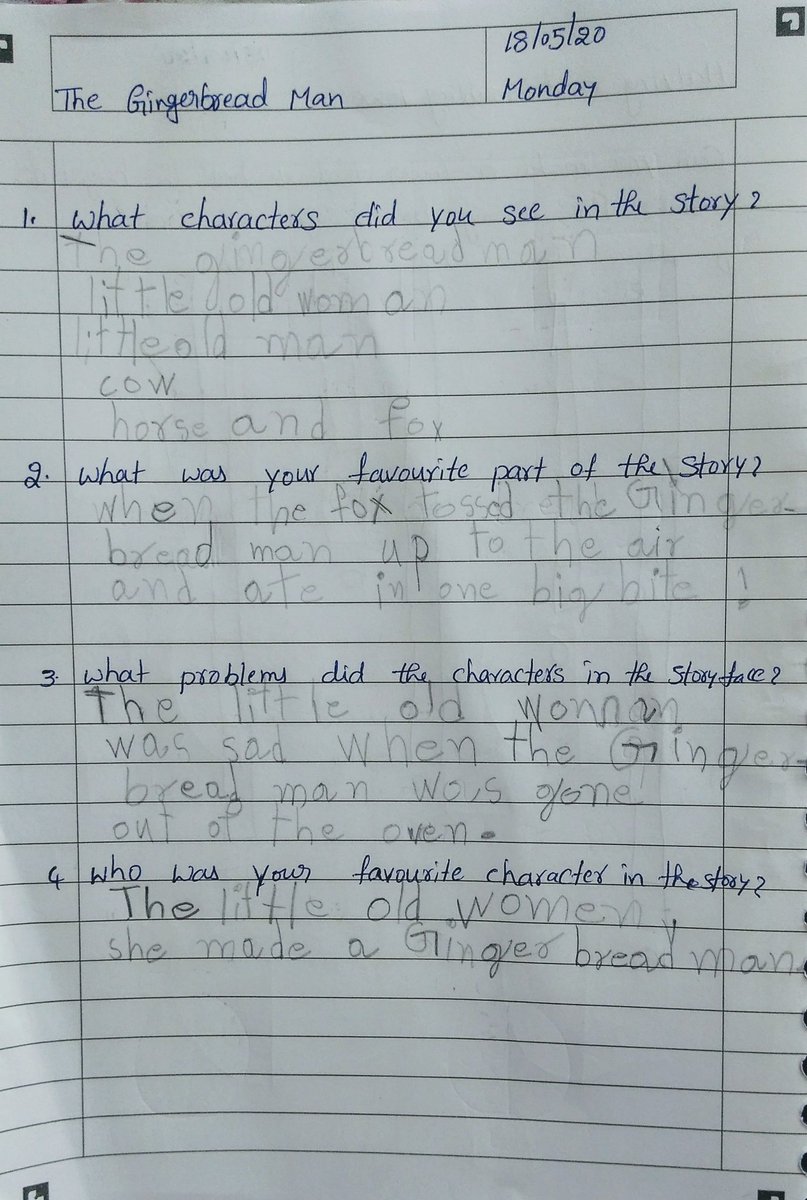 18/05/20
The Gingerbread Man
Monday
1. What characters did you see in the story?
The gingerbread man
little old woman
little old man
cow
horse and fox
2. What was your favourite part of the story?
when the fox tossed the Ginger-
bread man up to the air
and ate in one big bite !
3. What problems did the characters in the story face?
The little old woman
was sad when the Ginger-
bread man was gone
out of the oven.
4 who was your favourite character in the story?
The little old women,
she made a Ginger bread man.